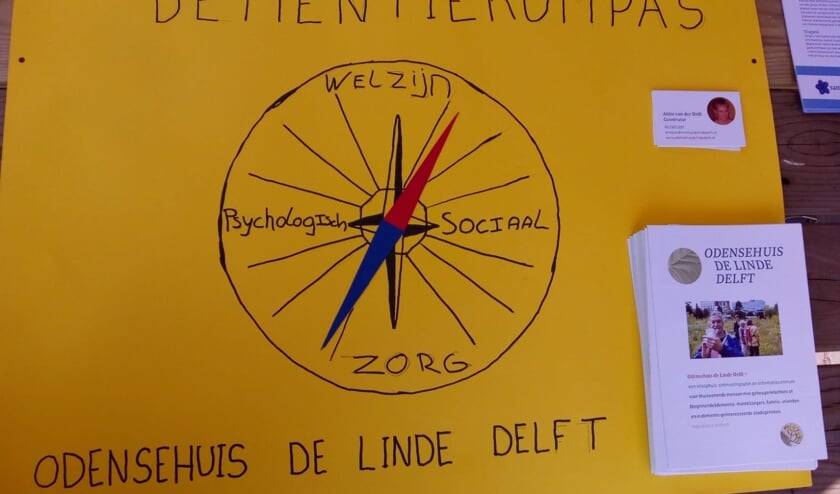 DEMENTIEKOMPAS
WELZIJN
Psychologisch
SOCIAAL
ZORG
ODENSEHUIS DE LINDE DELFT
Coördinator
ODENSEHUIS
DE LINDE
DELFT
Odensehuis de Linde Delft -
een inloophuis, ontmoetingsplek en informatiecentrum
voor thuiswonende mensen met geheugenklachten of
(beginnende)dementie, mantelzorgers, familie, vrienden
en in dementie geïnteresseerde stadsgenoten.